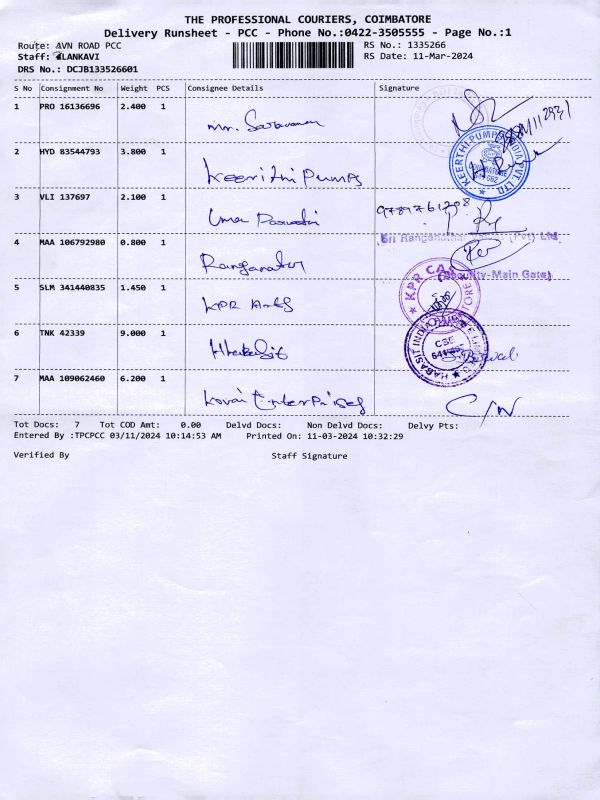 THE PROFESSIONAL COURIERS, COIMBATORE
Delivery Runsheet - PCC - Phone No.:0422-3505555 - Page No.:1
Route: AVN ROAD PCC
RS No.: 1335266
Staff: ALANKAVI
RS Date: 11-Mar-2024
DRS No.: DCJB133526601
S No Consignment No Weight PCS Consignee Details Signature
1 PRO 16136696 2.400 1 Mr. Saravanan
2 HYD 83544793 3.800 1 Keerithi Pumps
KEERTHI PUMPS INDIA PVT. LTD.
3 VLI 137697 2.100 1 Uma
4 MAA 106792980 0.800 1
(Pvt) Ltd
(Security-Main Gate)
5 SLM 341440835 1.450 1 KPR
KPR
6 TNK 42339 9.000 1
HABASIT
7 MAA 109062460 6.200 1 Kovai Enterprises
Tot Docs: 7 Tot COD Amt: 0.00 Delvd Docs: Non Delvd Docs: Delvy Pts:
Entered By :TPCPCC 03/11/2024 10:14:53 AM Printed On: 11-03-2024 10:32:29
Verified By Staff Signature